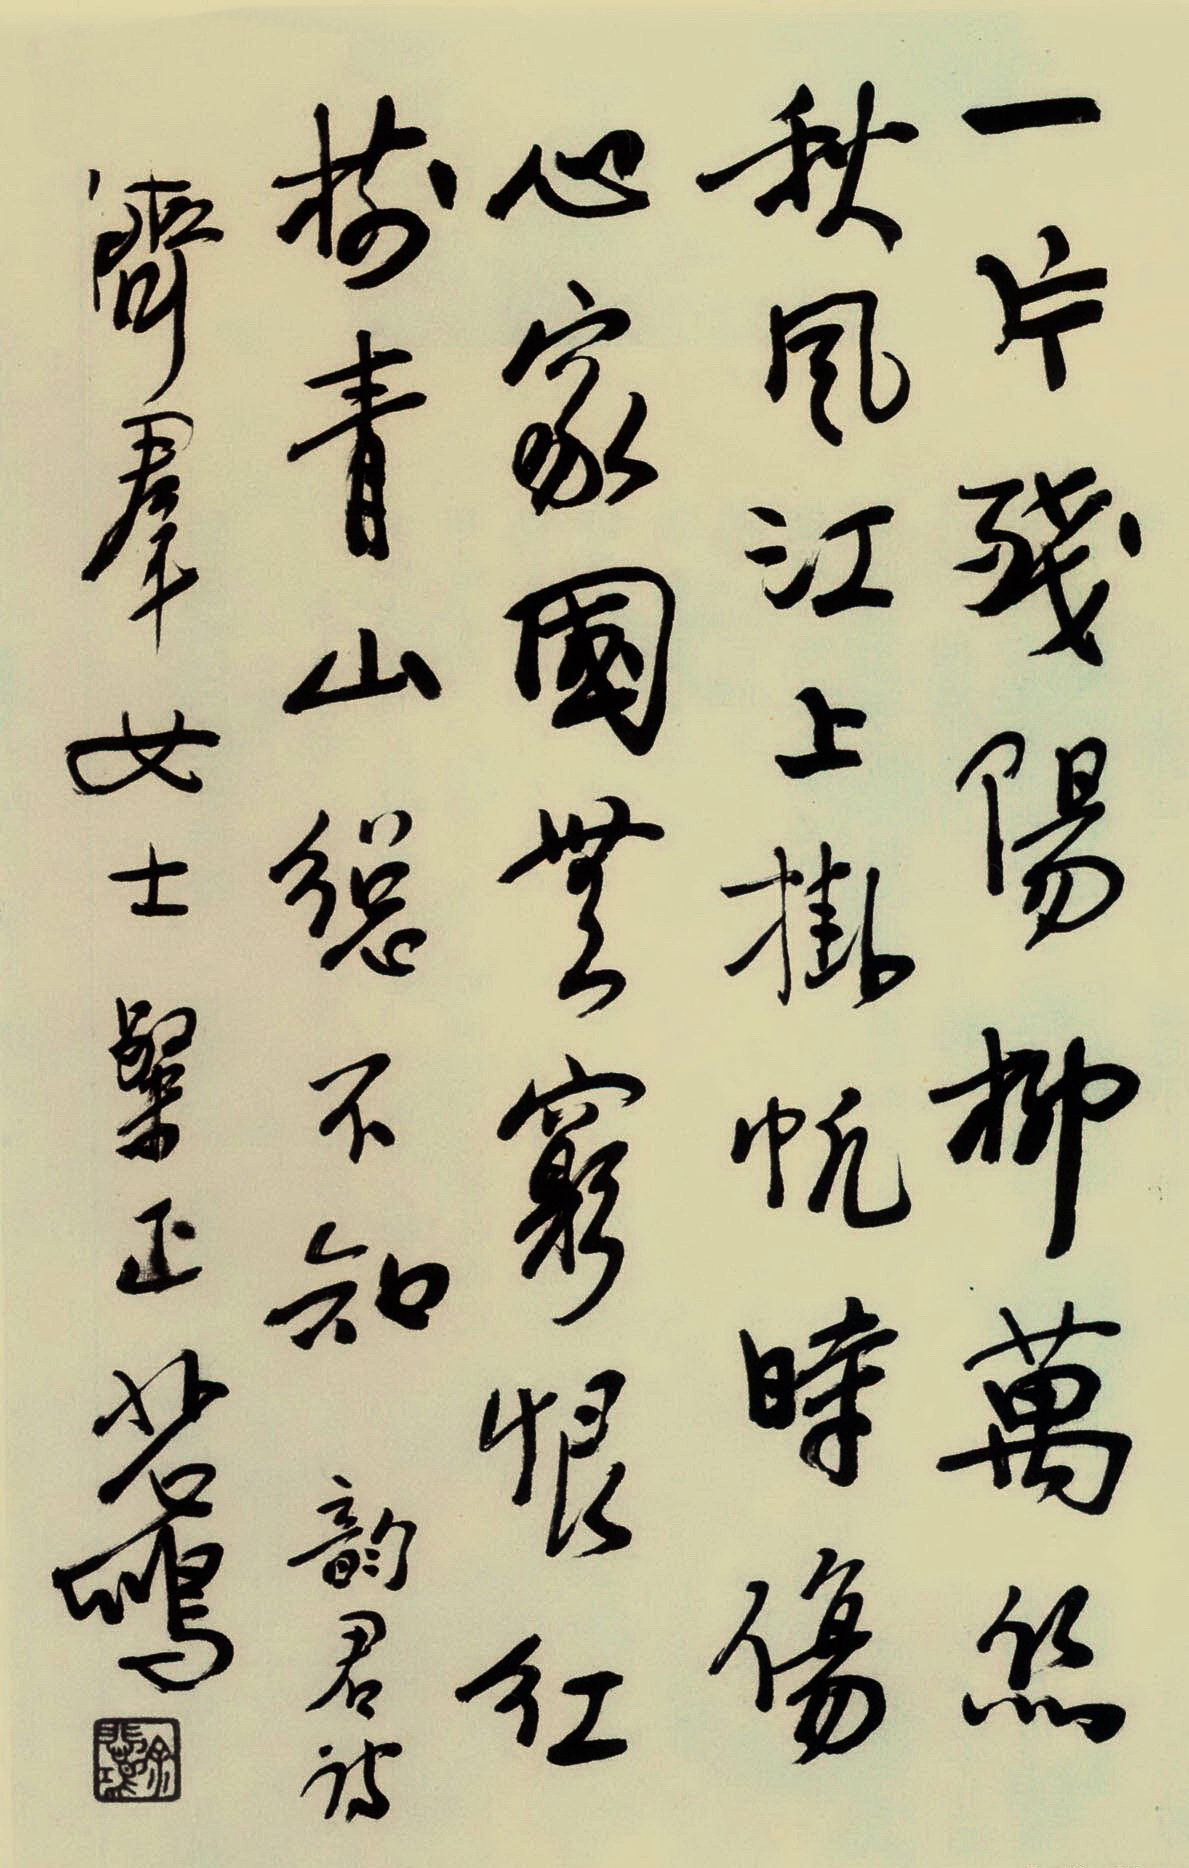 一片殘陽柳萬絲
秋風江上掛帆時傷
心家國無窮恨紅
樹青山總不知 韻君詩
齊羣女士粲正